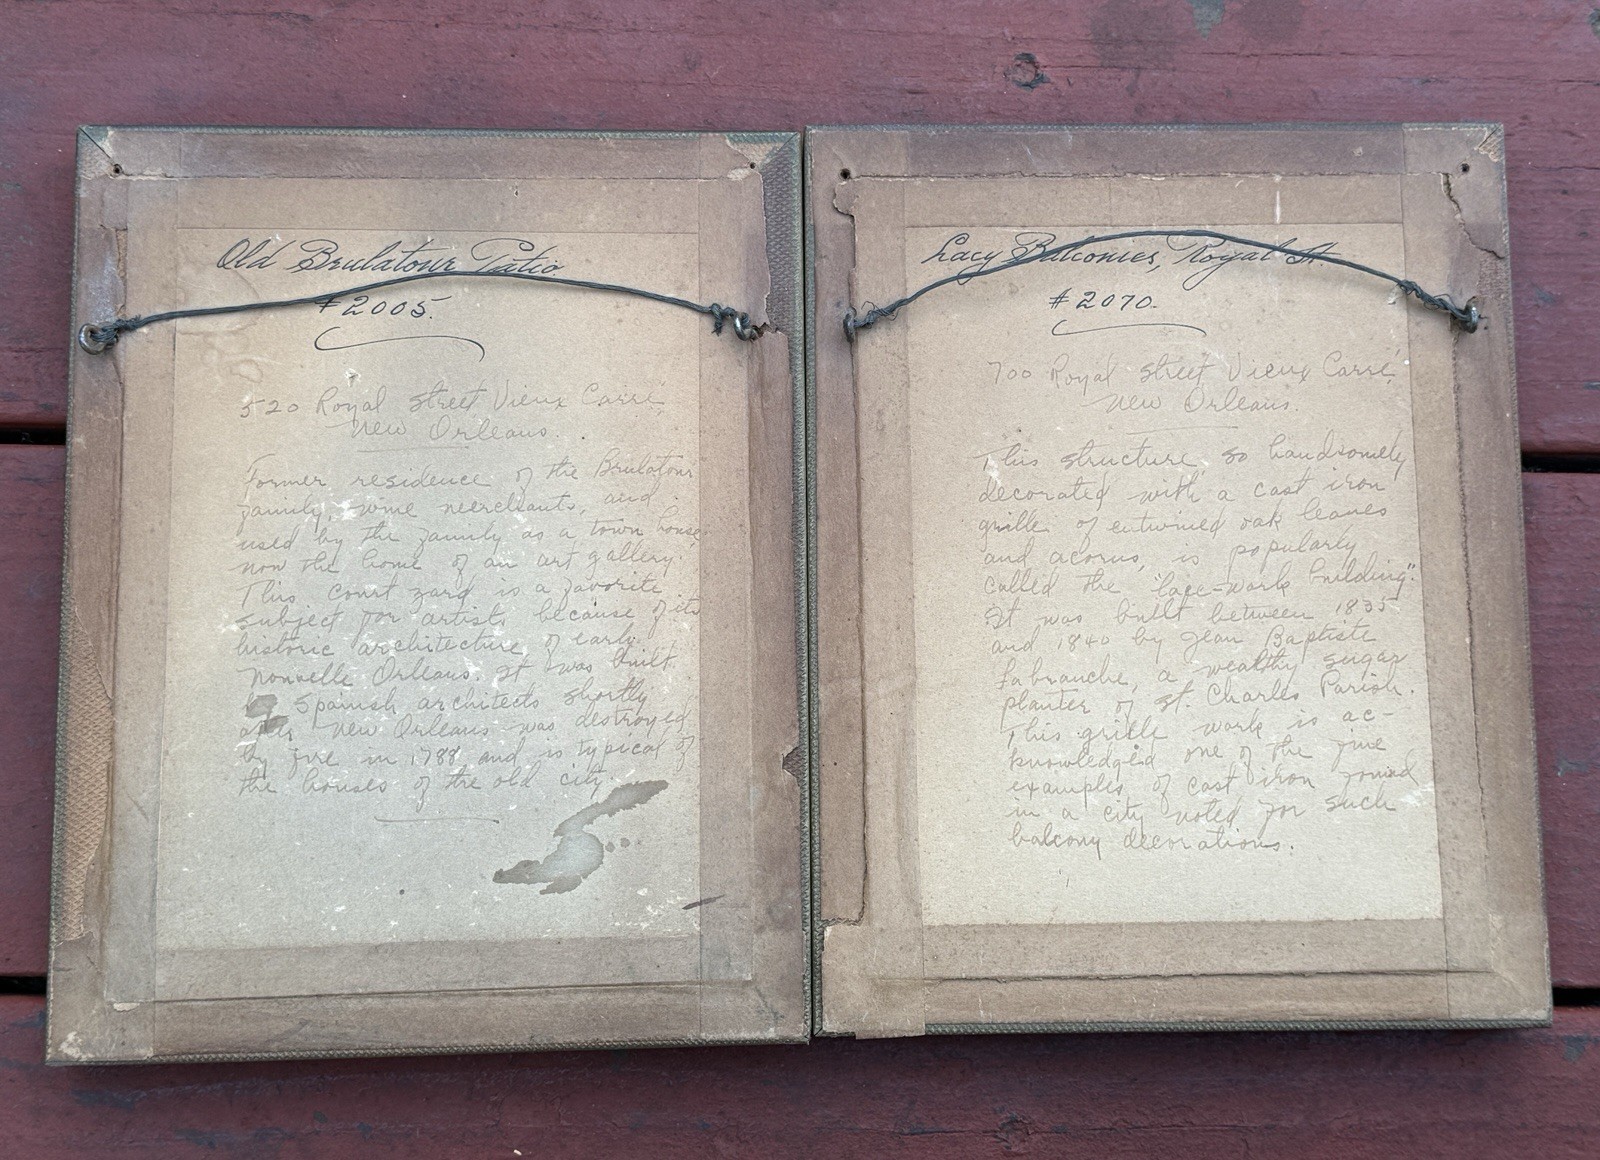 Old Brulatour Patio
# 2005.
520 Royal Street Vieux Carré,
New Orleans.
Former residence of the Brulatour
family, wine merchants, and
used by the family as a town house,
now the home of an art gallery.
This court yard is a favorite
subject for artists because of its
historic architecture of early
Nouvelle Orleans. It was built
by Spanish architects shortly
after New Orleans was destroyed
by fire in 1788 and is typical of
the houses of the old city.
Lacy Balconies, Royal St.
# 2070.
700 Royal Street Vieux Carré,
New Orleans.
This structure so handsomely
decorated with a cast iron
grille of entwined oak leaves
and acorns, is popularly
called the "lace-work building".
It was built between 1835
and 1840 by Jean Baptiste
Labranche, a wealthy sugar
planter of St. Charles Parish.
This grille work is ac-
knowledged one of the fine
examples of cast iron found
in a city noted for such
balcony decorations.